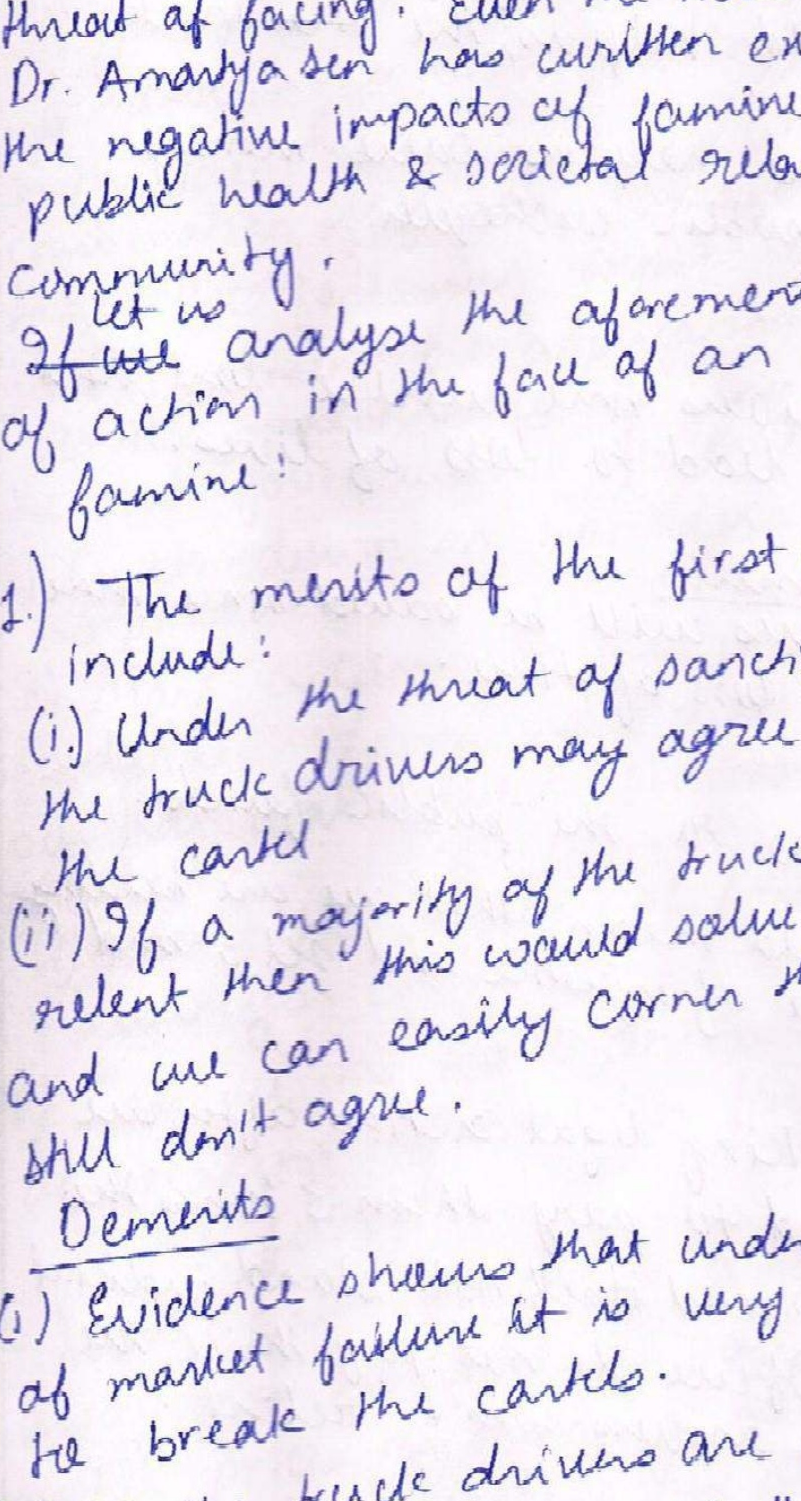 threat of facing. Even
Dr. Amartya Sen has written ex
the negative impacts of famine
public health & societal rela
community.
let us
If we analyse the aforemen
of action in the face of an
famine:
1.) The merits of the first
include:
(i.) Under the threat of sancti
the truck drivers may agree
the cartel
(ii) If a majority of the truck
relent then this would solve
and we can easily corner th
still don't agree.
Demerits
(i) Evidence shows that unde
of market failure it is very
to break the cartels.
truck drivers are